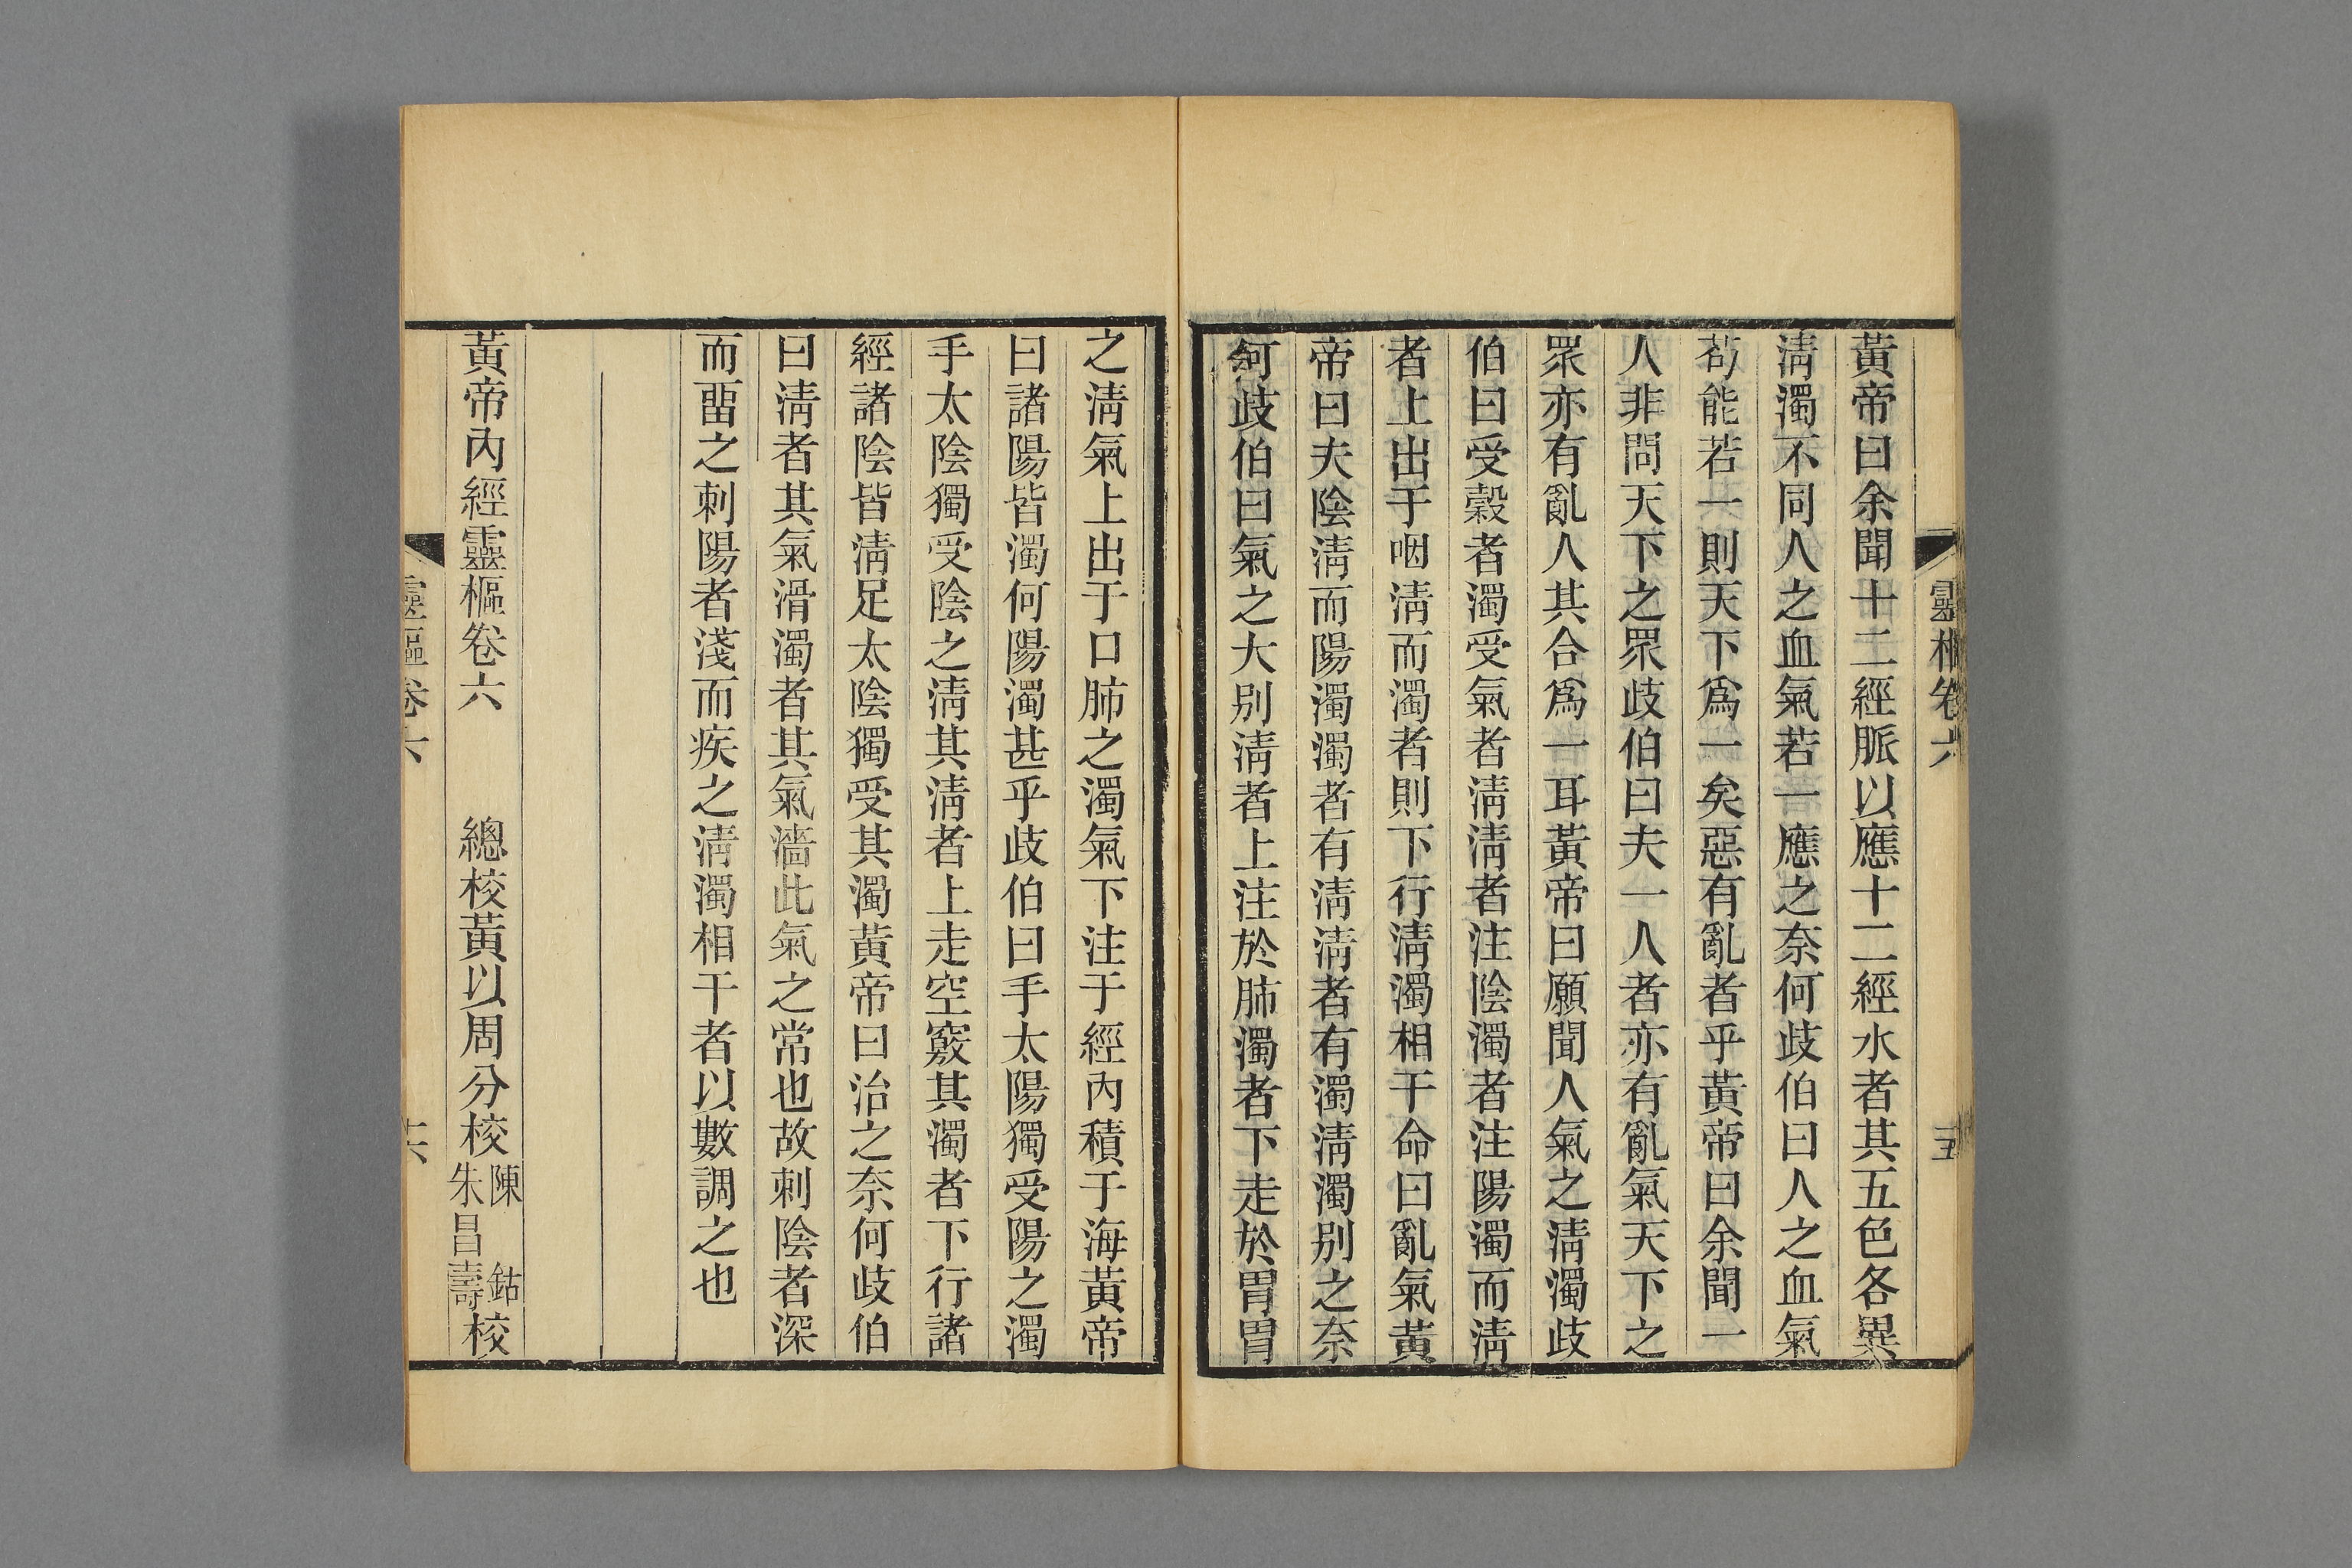 靈樞卷六
黃帝曰余聞十二經脈以應十二經水者其五色各異
淸濁不同人之血氣若一應之奈何歧伯曰人之血氣
苟能若一則天下爲一矣惡有亂者乎黃帝曰余聞一
人非問天下之眾歧伯曰夫一人者亦有亂氣天下之
眾亦有亂人其合爲一耳黃帝曰願聞人氣之淸濁歧
伯曰受穀者濁受氣者淸淸者注陰濁者注陽濁而淸
者上出于咽淸而濁者則下行淸濁相干命曰亂氣黃
帝曰夫陰淸而陽濁濁者有淸淸者有濁淸濁別之奈
何歧伯曰氣之大別淸者上注於肺濁者下走於胃胃
之淸氣上出于口肺之濁氣下注于經內積于海黃帝
曰諸陽皆濁何陽濁甚乎歧伯曰手太陽獨受陽之濁
手太陰獨受陰之淸其淸者上走空竅其濁者下行諸
經諸陰皆淸足太陰獨受其濁黃帝曰治之奈何歧伯
曰淸者其氣滑濁者其氣濇此氣之常也故刺陰者深
而畱之刺陽者淺而疾之淸濁相干者以數調之也
黃帝內經靈樞卷六 總校黃以周分校陳鈷朱昌壽校
靈樞卷六